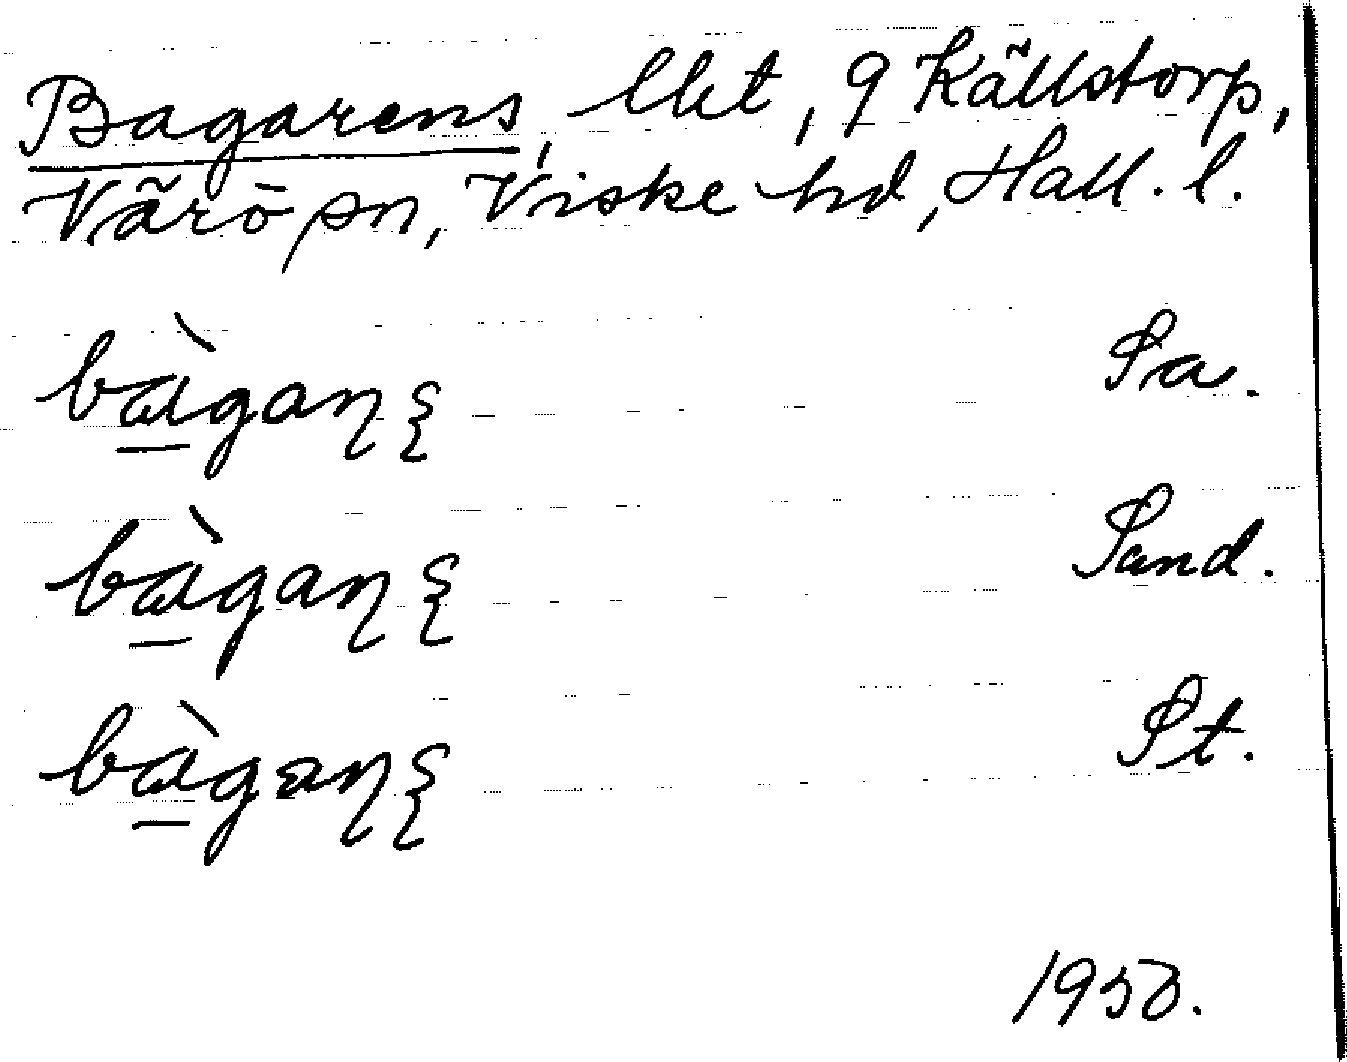 Bagarens, lht, 9 Källstorp,
Värö sn, Viske hd, Hall. l.
bàgaɳʂ Sa.
bàgaɳʂ Sand.
bàgaɳʂ St.
1950.